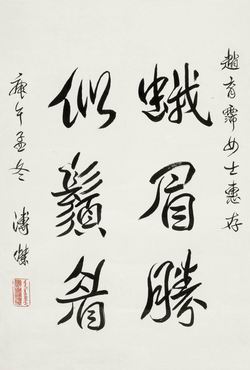 趙育女士惠存
蛾眉勝
似鬚眉
庚午孟冬 溥傑